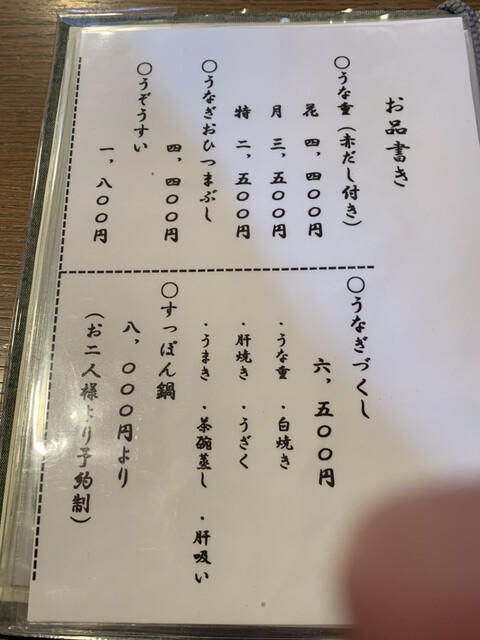 お品書き
〇うな重(赤だし付き)
花 四、四〇〇円
月 三、五〇〇円
特 二、五〇〇円
〇うなぎおひつまぶし
四、四〇〇円
〇うぞうすい
一、八〇〇円
〇うなぎづくし
六、五〇〇円
・うな重 ・白焼き
・肝焼き ・うざく
・うまき ・茶碗蒸し ・肝吸い
〇すっぽん鍋
八、〇〇〇円より
(お二人様より予約制)